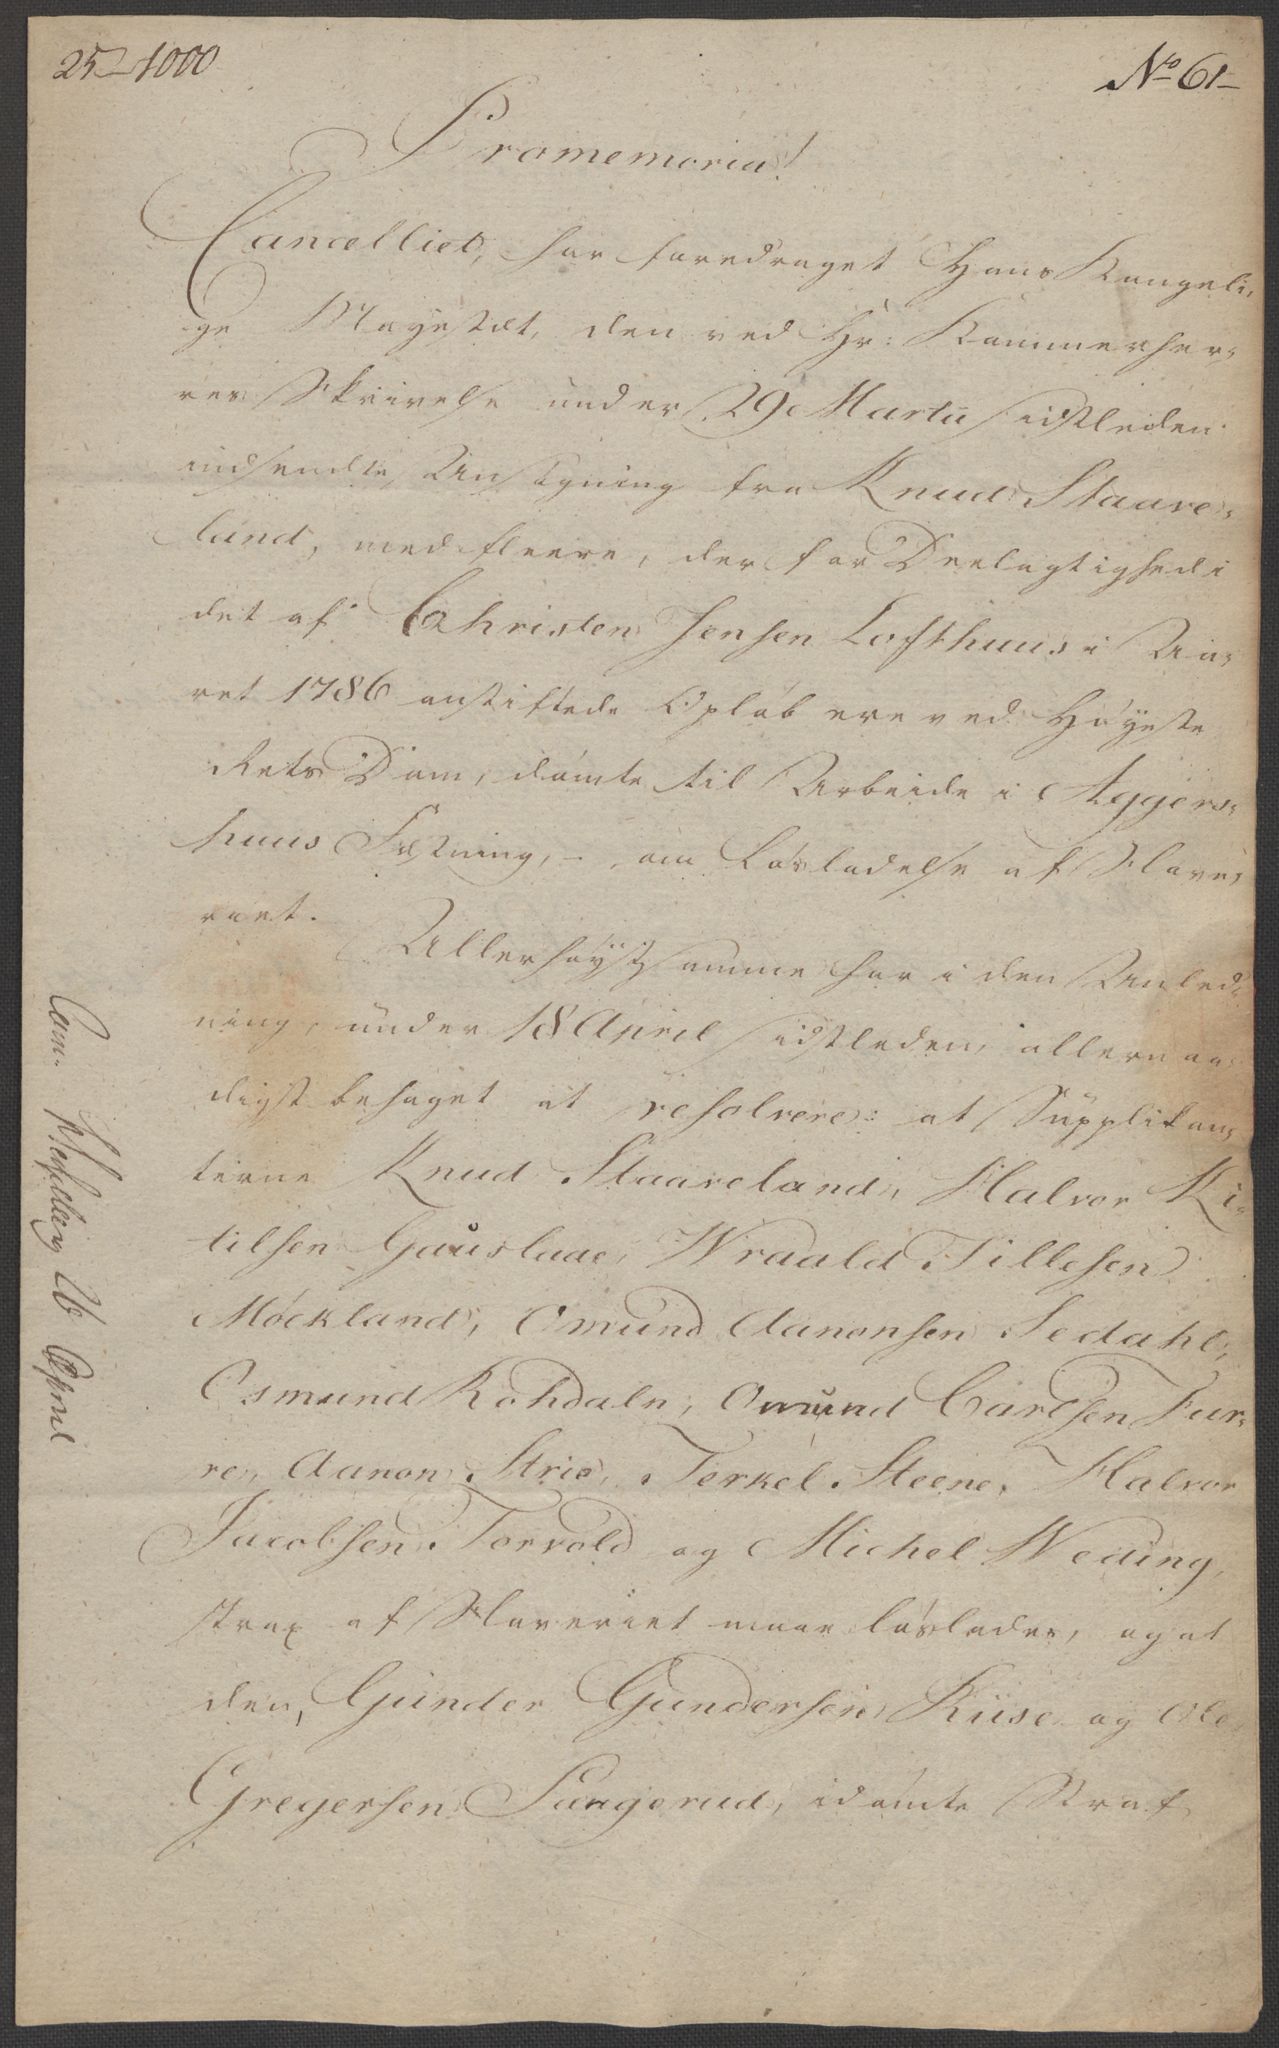 25-1000
No 61-
Promemoria!
Cancelliet, har foredraget Hans Kongeli,
ge Mayestæt, den ved Hr: Kammerher,
res Skrivelse under 29 Martii sidstleden
indsendte Ansøgning fra Knud Staare,
land, med fleere, der for Deelagtighed i
det af Christen Jensen Lofthuus i Aa,
ret 1786 anstiftede Opløb ere ved Høyeste
Rets Dom, dømte til Arbeide i Aggers,
huus Fæstning, - om Løsladelse af Slave,
riet.
Allerhøystsamme har i den Anled,
ning, under 18 April sidstleden, allernaa,
digst behaget at resolvere: at Supplikan,
terne Knud Staareland, Halvor Ki,
tilsen Gauslaae, Wraald Tillesen
Møckland, Omund Aanonsen Sedahl,
Osmund Rohdaln, Omund Carlsen Fur,
re, Aanon Strie, Terkel Steene, Halvor
Jacobsen Torvold og Michel Weding,
strax af Slaveriet maae løslades, og at
den, Gunder Gundersen Riise og Ole
Gregersen Sangerud, idømte Straf
Com. 26 April